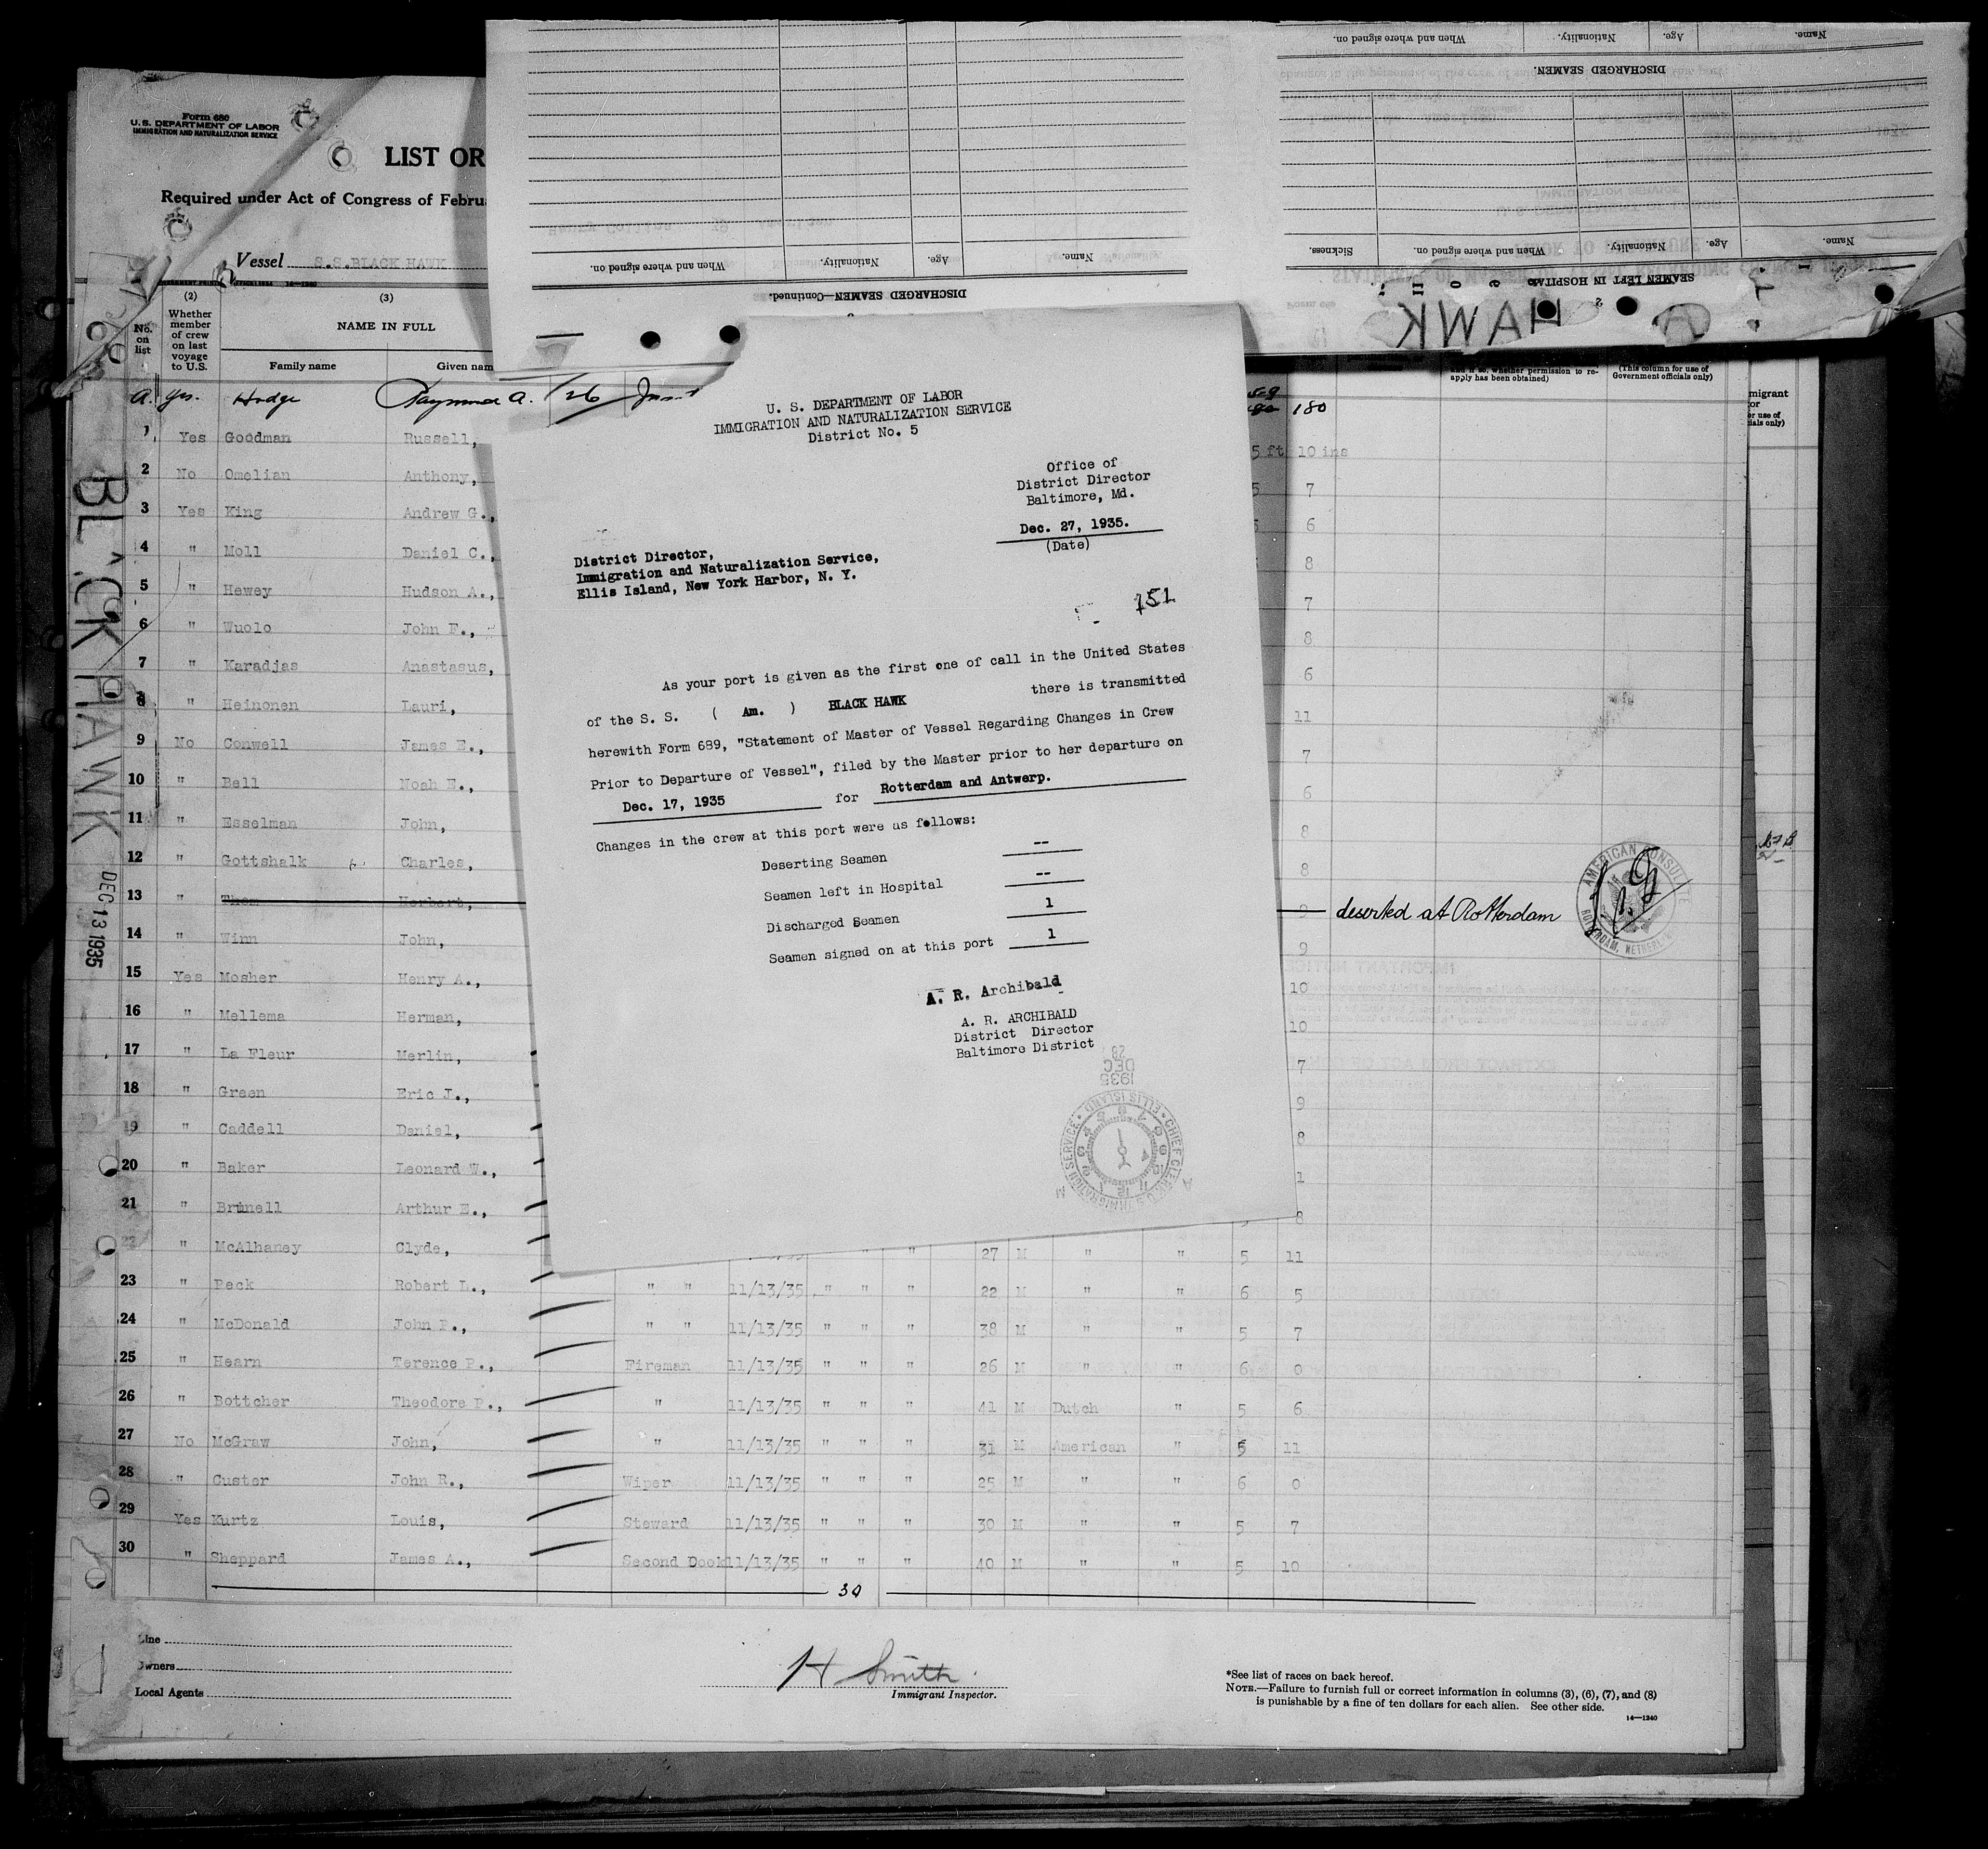 Form 680
U. S. DEPARTMENT OF LABOR
IMMIGRATION AND NATURALIZATION SERVICE
LIST OR
Required under Act of Congress of Februa
Vessel S.S.BLACK HAWK
(2) (3)
No. on list
Whether member of crew on last voyage to U.S.
NAME IN FULL
Family name Given nam
Name. Age. Nationality. When and where signed on.
DISCHARGED SEAMEN.
Name. Age. Nationality. When and where signed on. Sickness.
SEAMEN LEFT IN HOSPITAL
Name. Age. Nationality. When and where signed on.
DISCHARGED SEAMEN—Continued.
HAWK
and if so, whether permission to re-
apply has been obtained)
(This column for use of
Government officials only)
migrant
or
er use of
ials only)
BLACK HAWK
DEC 13 1935
A. yes. Hodge Raymond A. 26 180
1 Yes Goodman Russell, 5 ft 10 ins
2 No Omelian Anthony, 5 7
3 Yes King Andrew G., 6
4 " Moll Daniel C., 8
5 " Hewey Hudson A., 7
6 " Wuolo John F., 8
7 " Karadjas Anastasus, 6
8 " Heinonen Lauri, 11
9 No Conwell James E., 7
10 " Bell Noah E., 6
11 " Esselman John, 8
12 " Gottshalk Charles, 8
13 " Thom Herbert, 9 deserted at Rotterdam
14 " Winn John, 9
15 Yes Mosher Henry A., 10
16 " Mellema Herman, 10
17 " La Fleur Merlin, 7
18 " Green Eric J., 9
19 " Caddell Daniel, 8
20 " Baker Leonard W., 1
21 " Brunell Arthur E., 8
22 " McAlhaney Clyde, " " 27 M " " 5 11
23 " Peck Robert L., " " 11/13/35 " " " 22 M " " 6 5
24 " McDonald John P., " " 11/13/35 " " " 38 M " " 5 7
25 " Hearn Terence P., Fireman 11/13/35 " " " 26 M " " 6 0
26 " Bottcher Theodore P., " 11/13/35 " " " 41 M Dutch " 5 6
27 No McGraw John, " 11/13/35 " " " 31 M American " 5 11
28 " Custer John R., Wiper 11/13/35 " " " 25 M " " 6 0
29 Yes Kurtz Louis, Steward 11/13/35 " " " 30 M " " 5 7
30 " Sheppard James A., Second Dook 11/13/35 " " " 40 M " " 5 10
30
AMERICAN CONSULATE
ROTTERDAM, NETHERL
U. S. DEPARTMENT OF LABOR
IMMIGRATION AND NATURALIZATION SERVICE
District No. 5
Office of
District Director
Baltimore, Md.
Dec. 27, 1935.
(Date)
District Director,
Immigration and Naturalization Service,
Ellis Island, New York Harbor, N. Y.
151
As your port is given as the first one of call in the United States
of the S. S. ( Am. ) BLACK HAWK there is transmitted
herewith Form 689, "Statement of Master of Vessel Regarding Changes in Crew
Prior to Departure of Vessel", filed by the Master prior to her departure on
Dec. 17, 1935 for Rotterdam and Antwerp.
Changes in the crew at this port were as follows:
Deserting Seamen --
Seamen left in Hospital --
Discharged Seamen 1
Seamen signed on at this port 1
A. R. Archibald
A. R. ARCHIBALD
District Director
Baltimore District
1935 DEC 28
CHIEF CLERK U.S. IMMIGRATION SERVICE • ELLIS ISLAND •
Line
Owners
Local Agents
H Smith
Immigrant Inspector.
*See list of races on back hereof.
NOTE.—Failure to furnish full or correct information in columns (3), (6), (7), and (8)
is punishable by a fine of ten dollars for each alien. See other side.
14—1240